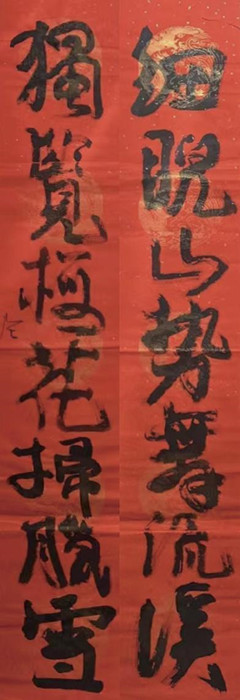 細睨山势舞流溪
獨覽梅花掃臘雪